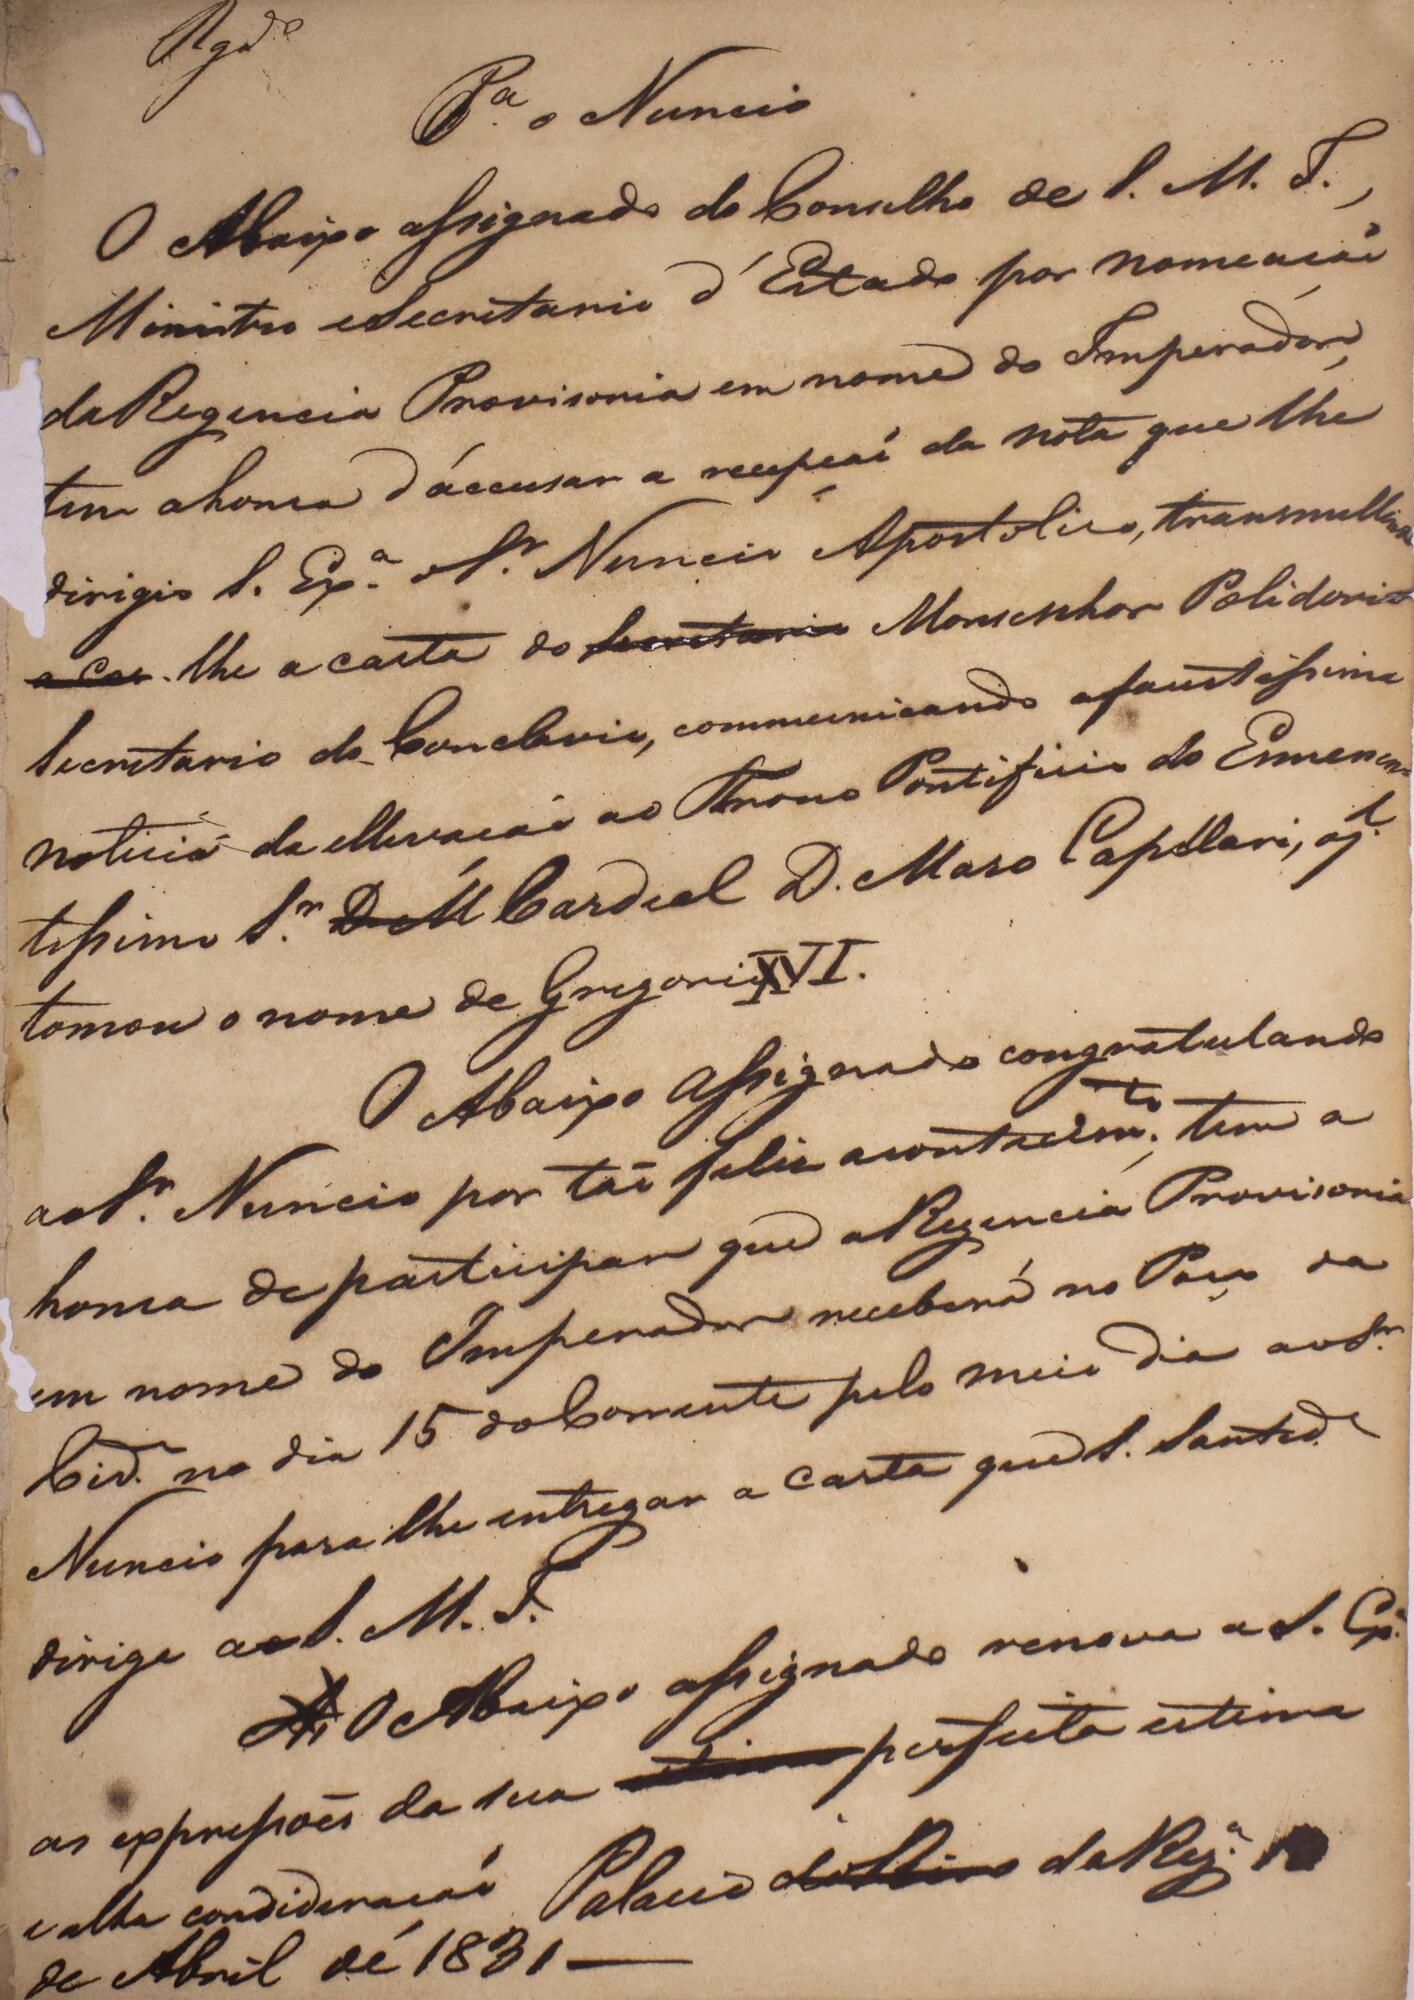 Rgdo
Pa. o Nuncio
O Abaixo assignado do Conselho de S. M. I.,
Ministro e Secretario d'Estado por nomeação
da Regencia Provisoria em nome do Imperador,
tem a honra d'accusar a recepção da nota que lhe
dirigio S. Exa. o Sr. Nuncio Apostolico, transmittindo
a car. lhe a carta do Secretario Monsenhor Polidori
Secretario do Conclavio, communicando a faustissima
noticia da ellevação ao Throno Pontificio do Eminen
tissimo Sr. D. M Cardeal D. Mauro Capellari, q
tomou o nome de Gregorio XVI.
O Abaixo assignado congratulando
ao Sr. Nuncio por tão feliz acontecimto., tem a
honra de participar que a Regencia Provisoria
em nome do Imperador receberá no Paço da
Cide. no dia 15 do Corrente pelo meio dia ao Sr.
Nuncio para lhe entregar a carta que S. Santide.
dirige a S. M. I.
O Abaixo assignado renova a S. Exa.
as expressões da sua estima perfeita estima
e alta condideração Palacio do Rio da Rega.
de Abril de 1831 —